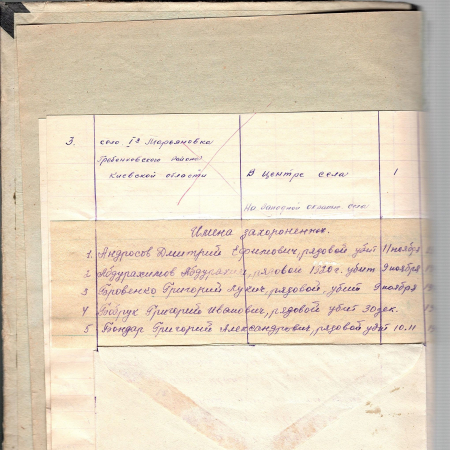 3. село Iя Марьяновка
Гребенковского района
Киевской области В центре села 1
На западной окраине села
Имена захороненных.
1. Андросов Дмитрий Ефимович, рядовой убит 11 ноября
2 Абдурахимов рядовой 1920 г. убит 9 ноября
3 Бровенко Григорий Лукич, рядовой, убит 9 ноября
4 Григорий Иванович, рядовой убит 30 дек.
5 Бондар Григорий Александрович, рядовой убит 10.11